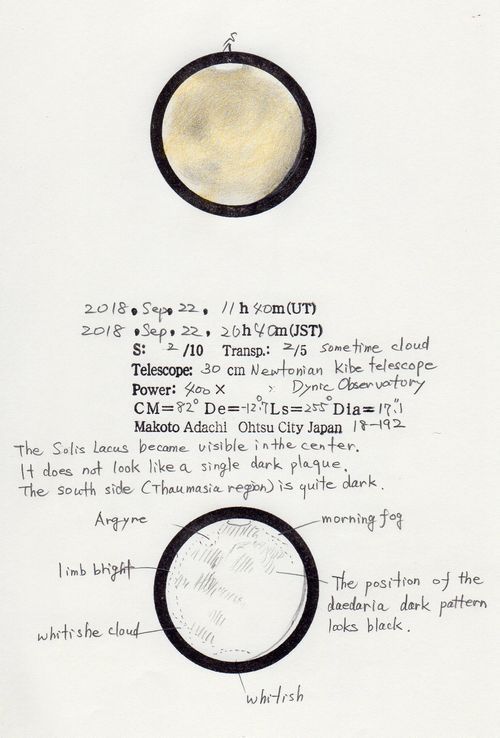 S
2018. Sep. 22. 11h 40m (UT)
2018. Sep. 22. 20h 40m (JST)
S: 2 /10 Transp.: 2/5 sometime cloud
Telescope: 30 cm Newtonian Kibe telescope
Power: 400 X Dynic Observatory
CM=82° De=-12.°7 Ls=255° Dia=17."1
Makoto Adachi Ohtsu City Japan 18-192
The Solis Lacus became visible in the center.
It does not look like a single dark plaque.
The south side (Thaumasia region) is quite dark.
Argyre
morning fog
limb bright
The position of the
daedaria dark pattern
looks black.
whitishe cloud
whitish